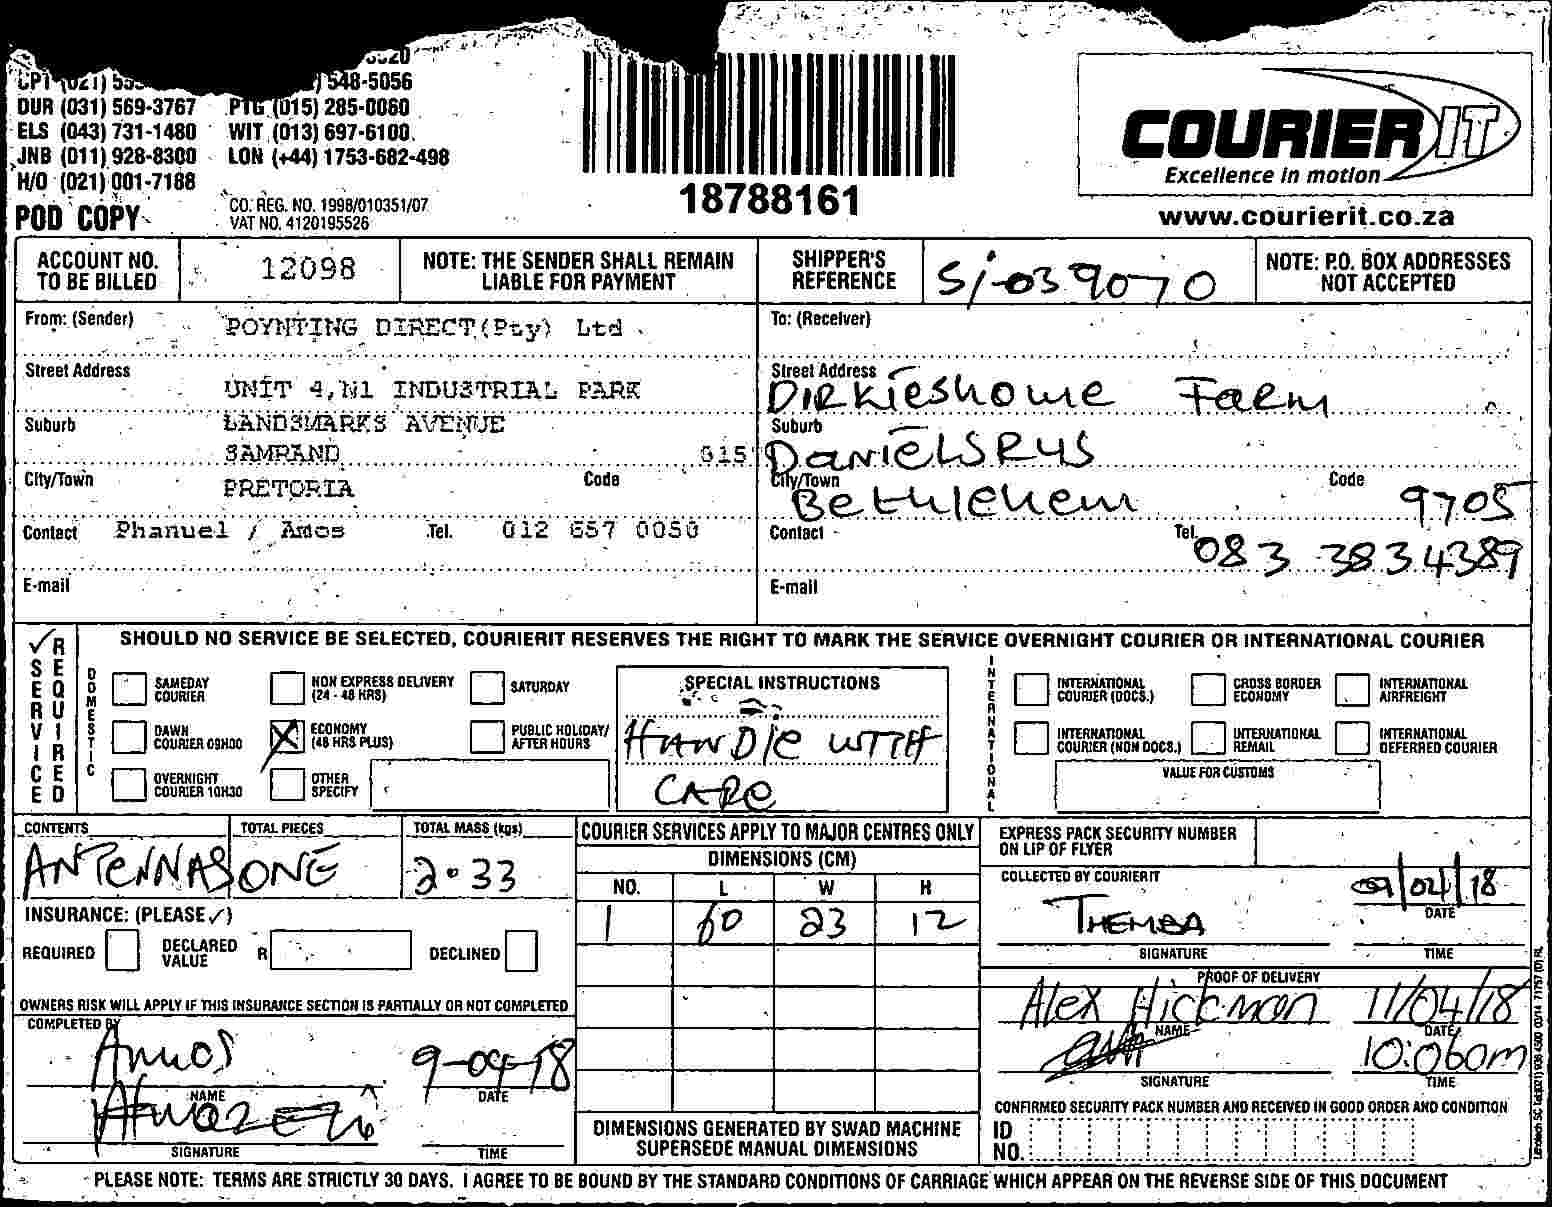 548-5056
DUR (031) 569-3767 PTG (015) 285-0060
ELS (043) 731-1480 WIT (013) 697-6100
JNB (011) 928-8300 LON (+44) 1753-682-498
H/O (021) 001-7188
POD COPY
CO. REG. NO. 1998/010351/07
VAT NO. 4120195526
18788161
COURIER IT
Excellence in motion
www.courierit.co.za
ACCOUNT NO. TO BE BILLED
12098
NOTE: THE SENDER SHALL REMAIN LIABLE FOR PAYMENT
SHIPPER'S REFERENCE
SI-039070
NOTE: P.O. BOX ADDRESSES NOT ACCEPTED
From: (Sender) POYNTING DIRECT (Pty) Ltd
Street Address UNIT 4, N1 INDUSTRIAL PARK
Suburb LANDSMARKS AVENUE
SAMRAND 015
City/Town PRETORIA Code
Contact Phanuel / Amos Tel. 012 657 0050
E-mail
To: (Receiver)
Street Address Dirkieshome Farm
Suburb DanielsRus
City/Town Bethlehem Code 9705
Contact Tel. 083 3834389
E-mail
✓ SERVICE REQUIRED
SHOULD NO SERVICE BE SELECTED, COURIERIT RESERVES THE RIGHT TO MARK THE SERVICE OVERNIGHT COURIER OR INTERNATIONAL COURIER
DOMESTIC
SAMEDAY COURIER
NON EXPRESS DELIVERY (24 - 48 HRS)
SATURDAY
DAWN COURIER 09H00
X ECONOMY (48 HRS PLUS)
PUBLIC HOLIDAY/ AFTER HOURS
OVERNIGHT COURIER 10H30
OTHER SPECIFY
SPECIAL INSTRUCTIONS
HANDle WITH
CARe
INTERNATIONAL
INTERNATIONAL COURIER (DOCS.)
CROSS BORDER ECONOMY
INTERNATIONAL AIRFREIGHT
INTERNATIONAL COURIER (NON DOCS.)
INTERNATIONAL REMAIL
INTERNATIONAL DEFERRED COURIER
VALUE FOR CUSTOMS
CONTENTS TOTAL PIECES TOTAL MASS (kgs)
ANTeNNAS ONE 2.33
INSURANCE: (PLEASE ✓)
REQUIRED DECLARED VALUE R DECLINED
OWNERS RISK WILL APPLY IF THIS INSURANCE SECTION IS PARTIALLY OR NOT COMPLETED
COMPLETED BY
Amos 9-04-18
NAME DATE
SIGNATURE TIME
COURIER SERVICES APPLY TO MAJOR CENTRES ONLY
DIMENSIONS (CM)
NO. L W H
1 60 23 12
DIMENSIONS GENERATED BY SWAD MACHINE
SUPERSEDE MANUAL DIMENSIONS
EXPRESS PACK SECURITY NUMBER ON LIP OF FLYER
COLLECTED BY COURIERIT
THEMBA 09/04/18
DATE
SIGNATURE TIME
PROOF OF DELIVERY
Alex Hickman 11/04/18
NAME DATE
10:06am
SIGNATURE TIME
CONFIRMED SECURITY PACK NUMBER AND RECEIVED IN GOOD ORDER AND CONDITION
ID NO.
PLEASE NOTE: TERMS ARE STRICTLY 30 DAYS. I AGREE TO BE BOUND BY THE STANDARD CONDITIONS OF CARRIAGE WHICH APPEAR ON THE REVERSE SIDE OF THIS DOCUMENT